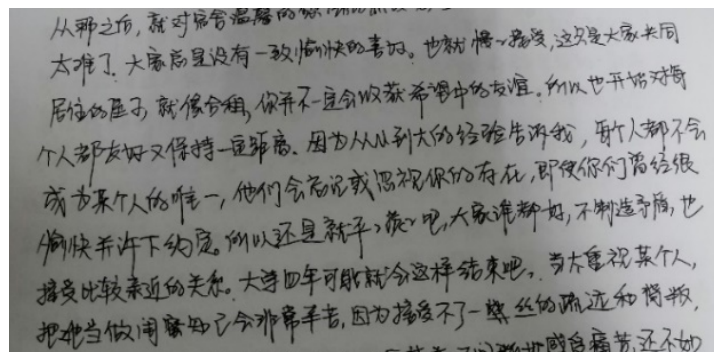 从那之后，就对宿舍温馨的
太难了，大家总是没有一致愉快的喜好。也就慢慢接受，这只是大家共同
居住的屋子，就像合租，你并不一定会收获希望中的友谊。所以也开始对每
个人都友好又保持一定距离。因为从小到大的经验告诉我，每个人都不会
成为某个人的唯一，他们会忘记或忽视你的存在，即使你们曾经很
愉快并许下约定。所以还是就平平淡淡吧，大家谁都好，不制造矛盾，也
接受比较亲近的关系。大学四年可能就会这样结束吧。当太重视某个人，
把她当做闺蜜知己会非常辛苦，因为接受不了一丝丝的疏远和背叛，
感自痛苦，还不如